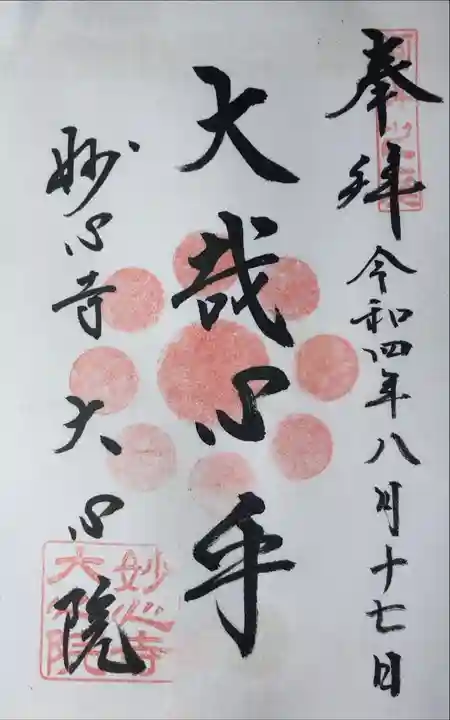 奉拝 令和四年八月十七日
大哉心乎
妙心寺 大心院
妙心寺
大心院